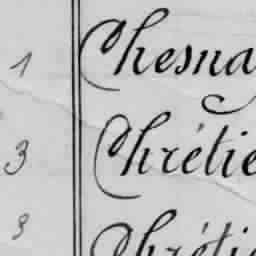 1 Chesna
3 Chrétie
3 Chrétie